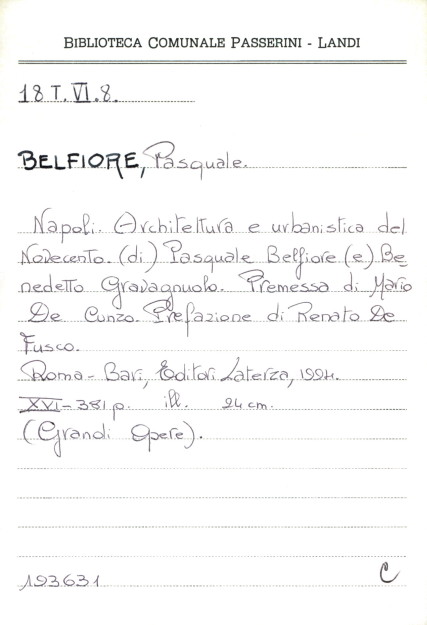 BIBLIOTECA COMUNALE PASSERINI - LANDI
18 T. VI. 8.
BELFIORE, Pasquale.
Napoli. Architettura e urbanistica del
Novecento. (di) Pasquale Belfiore (e) Be_
nedetto Gravagnuolo. Premessa di Mario
De Cunzo. Prefazione di Renato De
Fusco.
Roma - Bari, Editori Laterza, 1994.
XVI - 381 p. ill. 24 cm.
(Grandi Opere).
193631 C